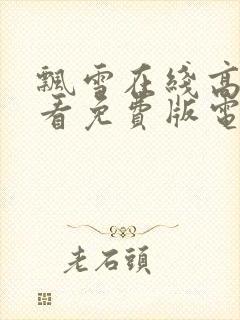 飄雪在綫高
看免費版電
老石頭